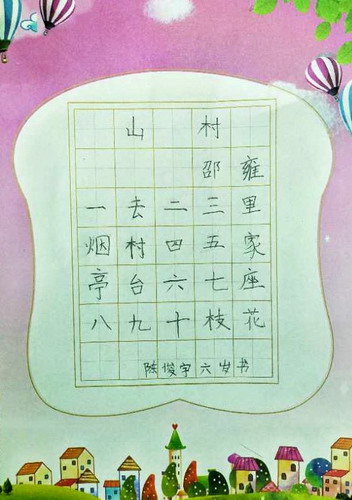 山村
邵雍
一去二三里
烟村四五家
亭台六七座
八九十枝花
陈俊宇六岁书